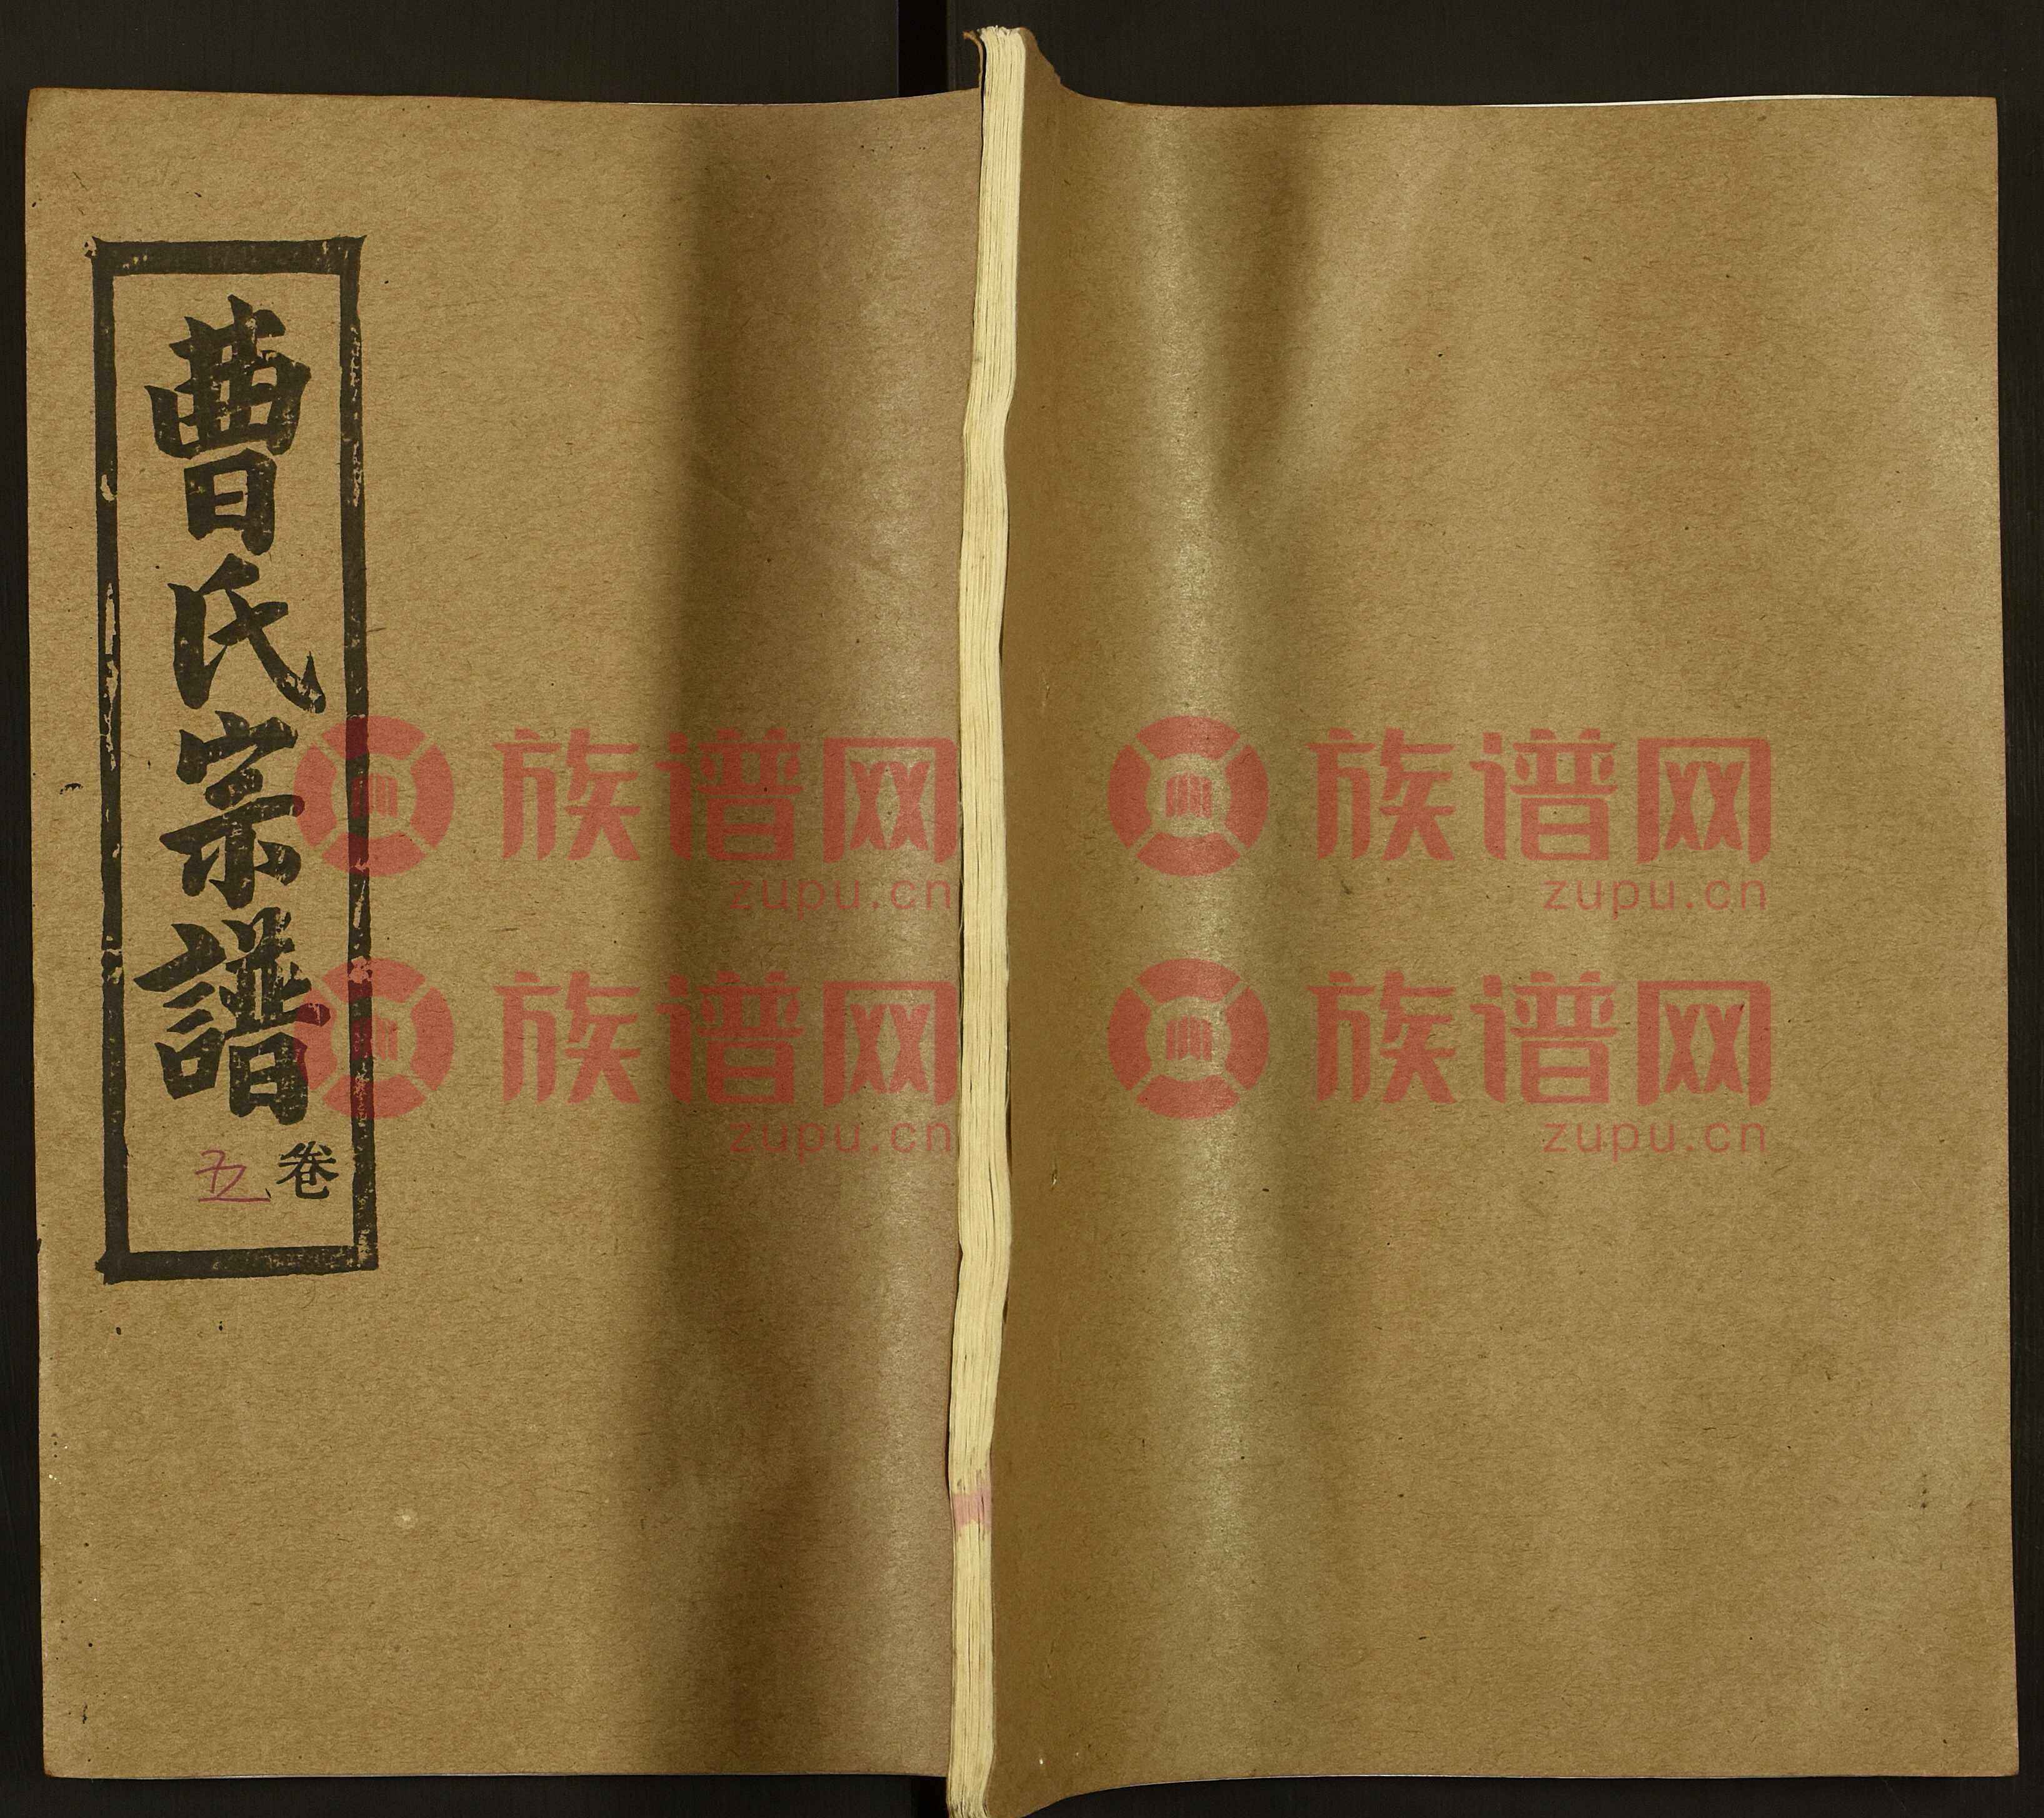 曹氏宗譜
卷
五
族谱网
zupu.cn
族谱网
zupu.cn
族谱网
zupu.cn
族谱网
zupu.cn